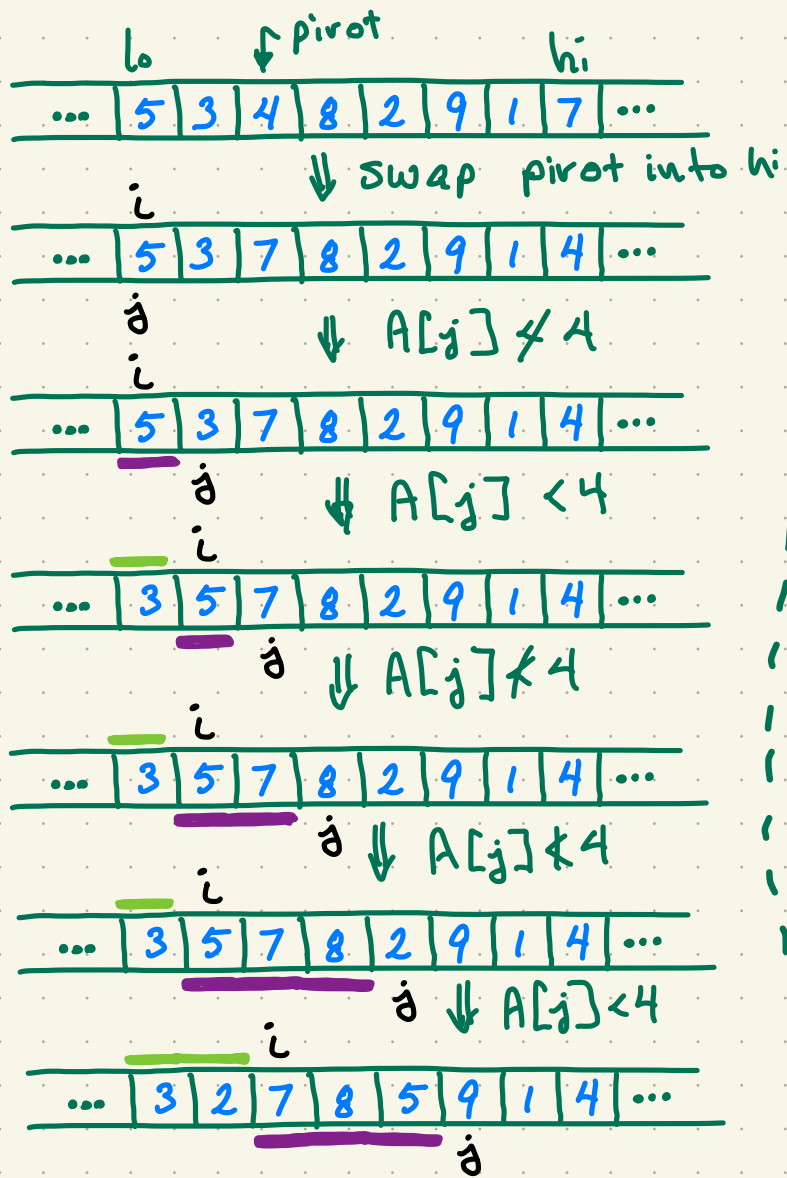 lo pivot hi
... 5 3 4 8 2 9 1 7 ...
⇓ swap pivot into hi
i
... 5 3 7 8 2 9 1 4 ...
j
⇓ A[j] ≮ 4
i
... 5 3 7 8 2 9 1 4 ...
j
⇓ A[j] < 4
i
... 3 5 7 8 2 9 1 4 ...
j
⇓ A[j] ≮ 4
i
... 3 5 7 8 2 9 1 4 ...
j
⇓ A[j] ≮ 4
i
... 3 5 7 8 2 9 1 4 ...
j
⇓ A[j] < 4
i
... 3 2 7 8 5 9 1 4 ...
j